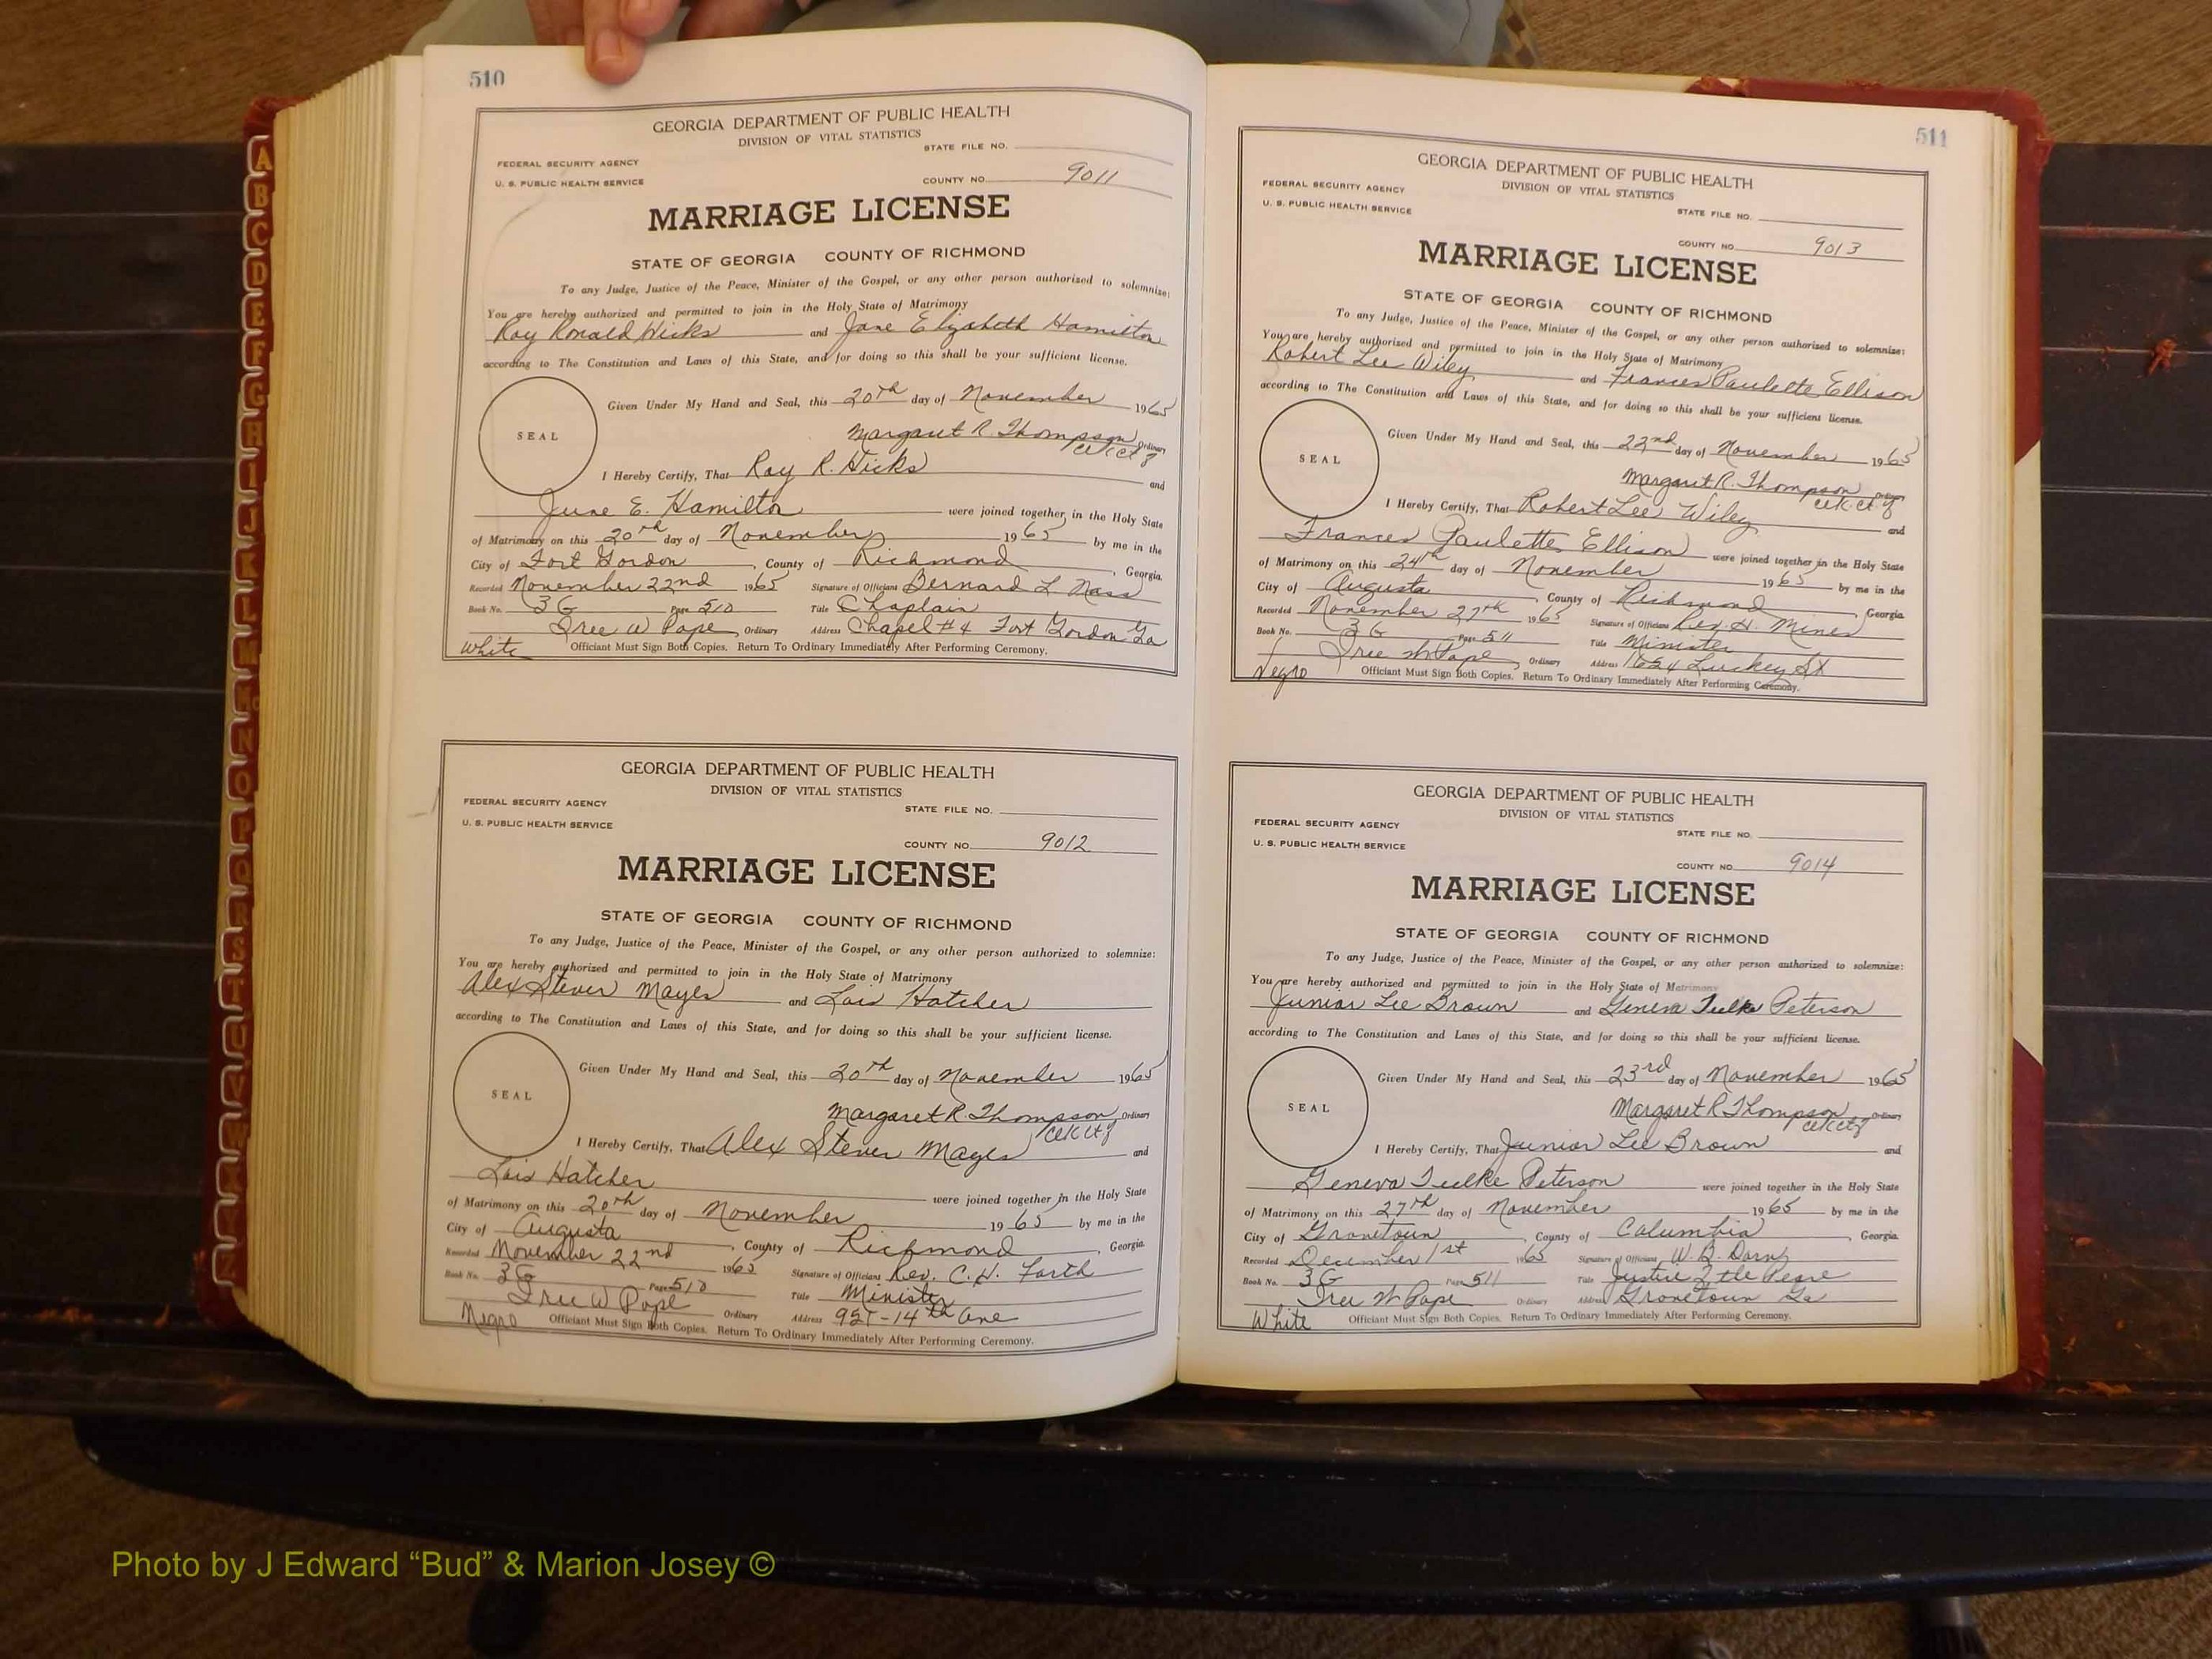 510
GEORGIA DEPARTMENT OF PUBLIC HEALTH
DIVISION OF VITAL STATISTICS
STATE FILE NO.
FEDERAL SECURITY AGENCY
U. S. PUBLIC HEALTH SERVICE
COUNTY NO. 9011
MARRIAGE LICENSE
STATE OF GEORGIA COUNTY OF RICHMOND
To any Judge, Justice of the Peace, Minister of the Gospel, or any other person authorized to solemnize:
You are hereby authorized and permitted to join in the Holy State of Matrimony
Roy Ronald Hicks and Jane Elizabeth Hamilton
according to The Constitution and Laws of this State, and for doing so this shall be your sufficient license.
Given Under My Hand and Seal, this 20th day of November 1965
SEAL
Margaret R. Thompson Ordinary
I Hereby Certify, That Roy R. Hicks and
June E. Hamilton were joined together in the Holy State
of Matrimony on this 20th day of November 1965 by me in the
City of Fort Gordon, County of Richmond, Georgia.
Recorded November 22nd 1965 Signature of Officiant Bernard L. Nass
Book No. 3G Page 510 Title Chaplain
W Pope, Ordinary Address Chapel #4 Fort Gordon Ga
White Officiant Must Sign Both Copies. Return To Ordinary Immediately After Performing Ceremony.
GEORGIA DEPARTMENT OF PUBLIC HEALTH
DIVISION OF VITAL STATISTICS
FEDERAL SECURITY AGENCY
STATE FILE NO.
U. S. PUBLIC HEALTH SERVICE
COUNTY NO. 9012
MARRIAGE LICENSE
STATE OF GEORGIA COUNTY OF RICHMOND
To any Judge, Justice of the Peace, Minister of the Gospel, or any other person authorized to solemnize:
You are hereby authorized and permitted to join in the Holy State of Matrimony
Alex Steven Mayes and Lois Hatcher
according to The Constitution and Laws of this State, and for doing so this shall be your sufficient license.
Given Under My Hand and Seal, this 20th day of November 1965
SEAL
Margaret R. Thompson Ordinary
I Hereby Certify, That Alex Steven Mayes and
Lois Hatcher were joined together in the Holy State
of Matrimony on this 20th day of November 1965 by me in the
City of Augusta, County of Richmond, Georgia.
Recorded November 22nd 1965 Signature of Officiant Rev. C. H.
Book No. 3G Page 510 Title Minister
W Pope Ordinary Address 14th Ave
Negro Officiant Must Sign Both Copies. Return To Ordinary Immediately After Performing Ceremony.
511
GEORGIA DEPARTMENT OF PUBLIC HEALTH
DIVISION OF VITAL STATISTICS
FEDERAL SECURITY AGENCY
U. S. PUBLIC HEALTH SERVICE
STATE FILE NO.
COUNTY NO. 9013
MARRIAGE LICENSE
STATE OF GEORGIA COUNTY OF RICHMOND
To any Judge, Justice of the Peace, Minister of the Gospel, or any other person authorized to solemnize:
You are hereby authorized and permitted to join in the Holy State of Matrimony
Robert Lee Wiley and Frances Paulette Ellison
according to The Constitution and Laws of this State, and for doing so this shall be your sufficient license.
Given Under My Hand and Seal, this 22nd day of November 1965
SEAL
Margaret R. Thompson Ordinary
I Hereby Certify, That Robert Lee Wiley and
Frances Paulette Ellison were joined together in the Holy State
of Matrimony on this 24th day of November 1965 by me in the
City of Augusta, County of Richmond, Georgia.
Recorded November 27th 1965 Signature of Officiant Rev. H. Mines
Book No. 3G Page 511 Title Minister
W Pope, Ordinary Address 1654 Luckey St
Negro Officiant Must Sign Both Copies. Return To Ordinary Immediately After Performing Ceremony.
GEORGIA DEPARTMENT OF PUBLIC HEALTH
DIVISION OF VITAL STATISTICS
FEDERAL SECURITY AGENCY
STATE FILE NO.
U. S. PUBLIC HEALTH SERVICE
COUNTY NO. 9014
MARRIAGE LICENSE
STATE OF GEORGIA COUNTY OF RICHMOND
To any Judge, Justice of the Peace, Minister of the Gospel, or any other person authorized to solemnize:
You are hereby authorized and permitted to join in the Holy State of Matrimony
Junior Lee Brown and Geneva Tulke Peterson
according to The Constitution and Laws of this State, and for doing so this shall be your sufficient license.
Given Under My Hand and Seal, this 23rd day of November 1965
SEAL
Margaret R Thompson Ordinary
I Hereby Certify, That Junior Lee Brown and
Geneva Tulke Peterson were joined together in the Holy State
of Matrimony on this 27th day of November 1965 by me in the
City of Grovetown, County of Columbia, Georgia.
Recorded December 1st 1965 Signature of Officiant W. B. Dorn
Book No. 3G Page 511 Title Justice of the Peace
W Pope Ordinary Address Grovetown Ga
White Officiant Must Sign Both Copies. Return To Ordinary Immediately After Performing Ceremony.
A
B
C
D
E
F
G
H
I
J
K
L
M
Mc
N
O
P
Q
R
S
T
U
V
W
Photo by J Edward “Bud” & Marion Josey ©